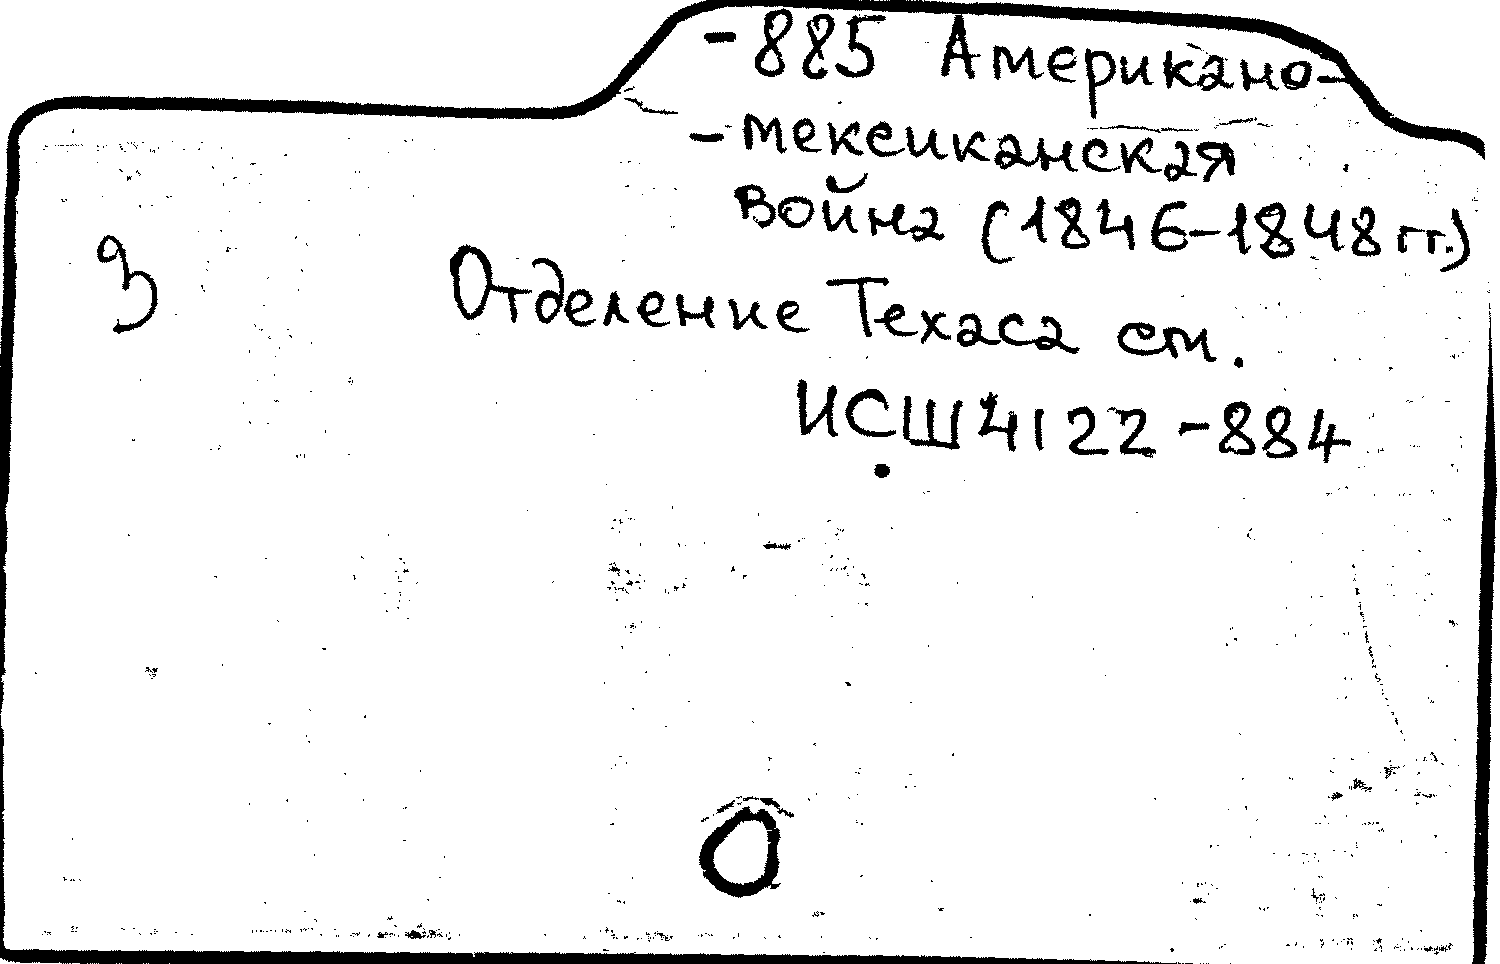 -885 Американо-
-мексиканская
война (1846-1848 гг.)
З Отделение Техаса см.
ИСШ 4122-884